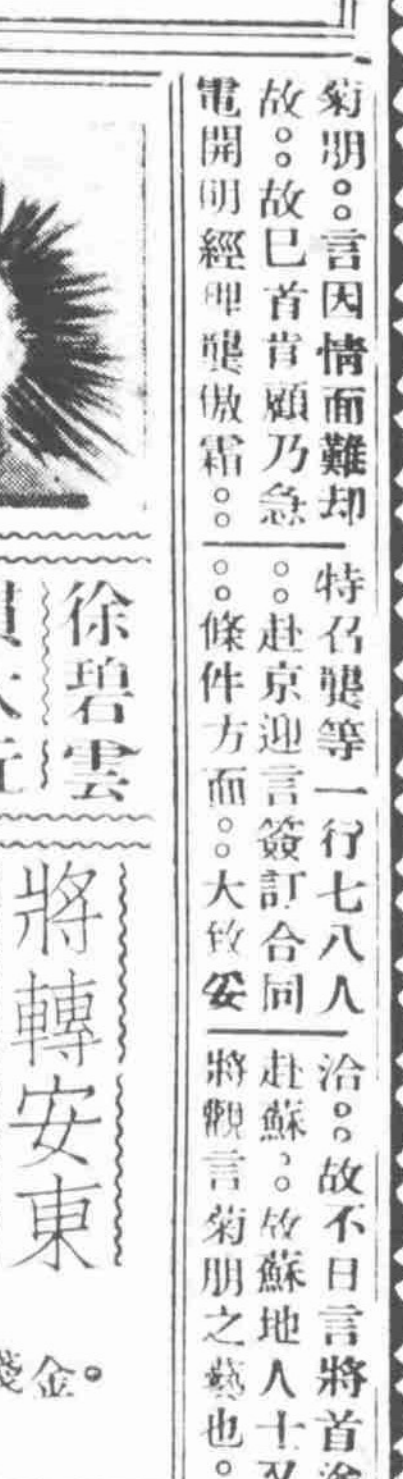 菊朋。。言因情面難却
故。。故已首肯顧乃急
電開明經理龔傲霜。。
特召龔等一行七八人
。。赴京迎言簽訂合同
。。條件方面。。大致妥
洽。。故不日言將首途
赴蘇。。故蘇地人士又
將觀言菊朋之藝也。
徐碧雲
將轉安東
金。